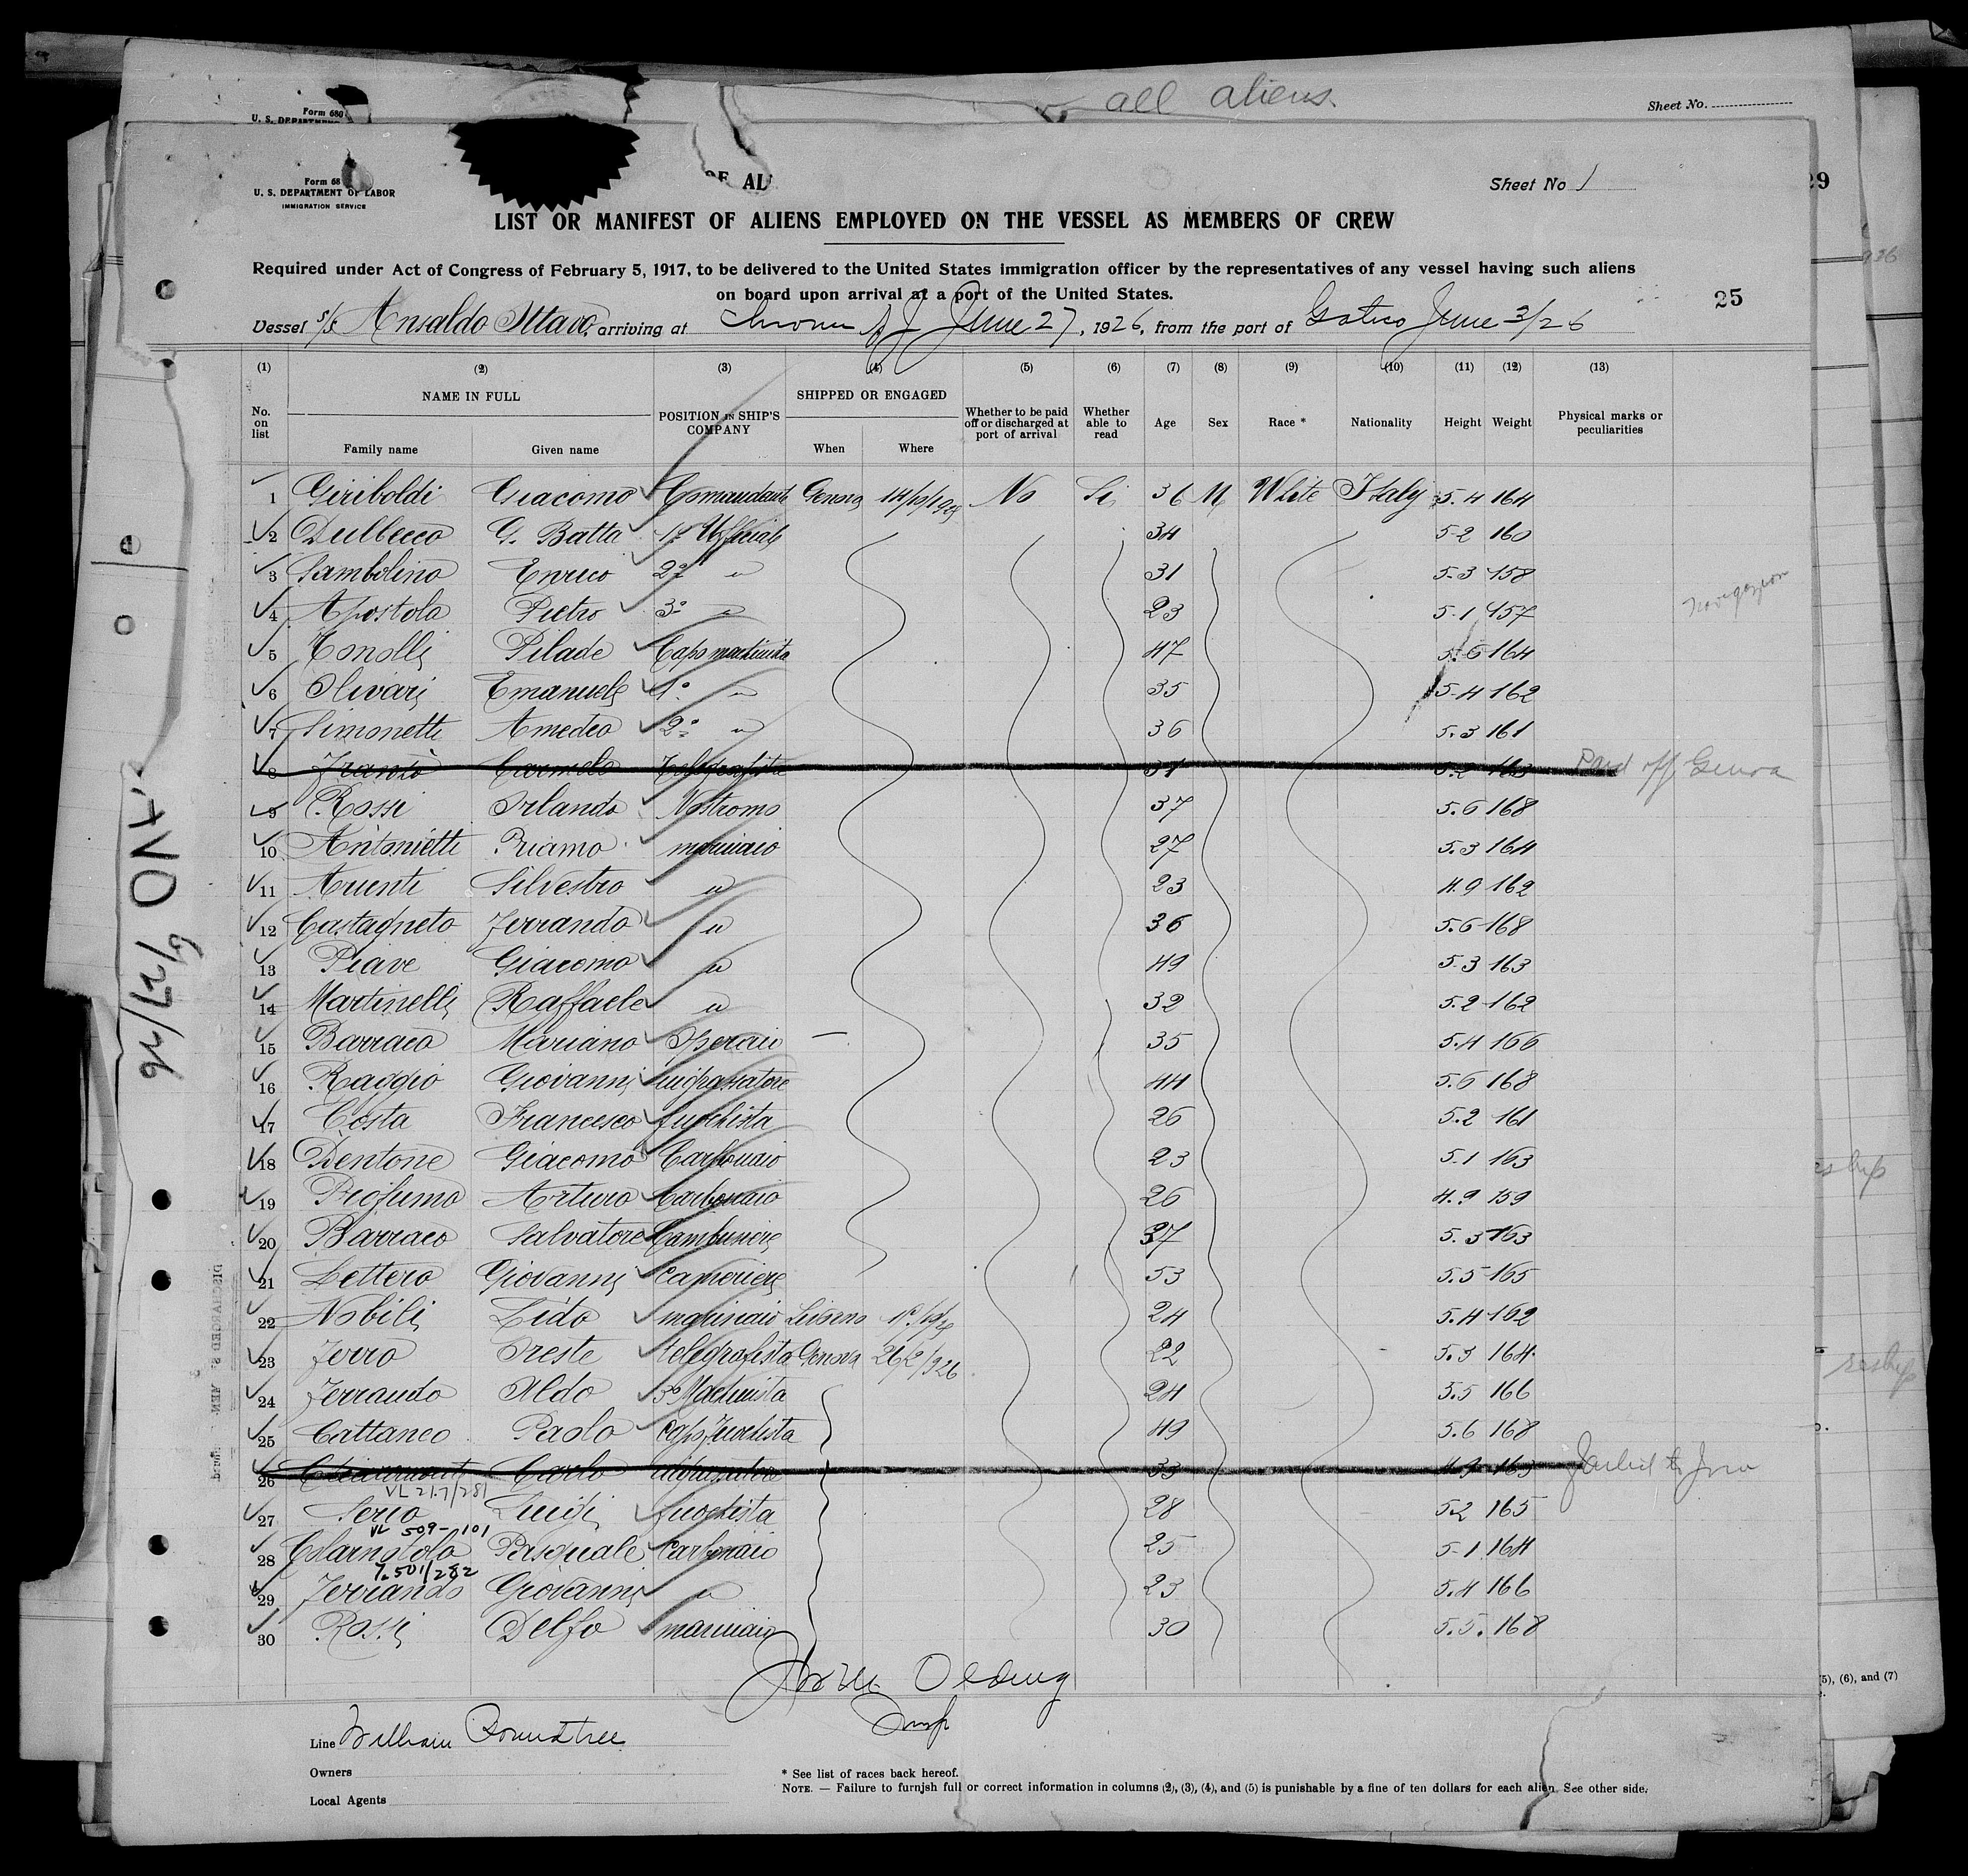 all aliens.
Sheet No.
Form 680
U. S. DEPARTMENT
Form 68
U. S. DEPARTMENT OF LABOR
IMMIGRATION SERVICE
OF AL
Sheet No 1
29
LIST OR MANIFEST OF ALIENS EMPLOYED ON THE VESSEL AS MEMBERS OF CREW
Required under Act of Congress of February 5, 1917, to be delivered to the United States immigration officer by the representatives of any vessel having such aliens
on board upon arrival at a port of the United States.
25
Vessel S/S Ansaldo Ottavo, arriving at June 27, 1926, from the port of June 3/26
(1) (2) (3) (4) (5) (6) (7) (8) (9) (10) (11) (12) (13)
No. on list NAME IN FULL Family name Given name POSITION IN SHIP'S COMPANY SHIPPED OR ENGAGED When Where Whether to be paid off or discharged at port of arrival Whether able to read Age Sex Race * Nationality Height Weight Physical marks or peculiarities
1 Giriboldi Giacomo Comandante Genova 14/10/1925 No Si 36 M White Italy 5.4 164
2 Dulbecco G. Batta 1° Ufficiale 34 5-2 160
3 Sambolino Enrico 2° " 31 5.3 158
4 Apostolo Pietro 3° " 23 5.1 157
5 Tonolli Pilade Capo machinista 47 5.6 164
6 Olivari Emanuele 1° " 35 5.4 162
7 Simonetti Amedeo 2° " 36 5.3 161
8 Carmelo Telegrafista 31 5.2 163 Paid off Genoa
9 Rossi Orlando Nostromo 37 5.6 168
10 Antonietti Priamo marinaio 27 5.3 164
11 Arienti Silvestro " 23 4.9 162
12 Castagneto Ferrando " 36 5.6 168
13 Piave Giacomo " 49 5.3 163
14 Martinelli Raffaele " 32 5.2 162
15 Barraco Mariano Operaio 35 5.4 166
16 Raggio Giovanni ingrassatore 44 5.6 168
17 Costa Francesco fuochista 26 5.2 161
18 Dentone Giacomo Carbonaio 23 5.1 163
19 Profumo Arturo Carbonaio 26 4.9 159
20 Barraco Salvatore Cambusiere 37 5.3 163
21 Lettero Giovanni Cameriere 53 5.5 165
22 Nobili Lido marinaio Livorno 24 5.4 162
23 Ferro Oreste telegrafista Genova 26/2/926 22 5.3 164
24 Ferrando Aldo 3° Machinista 24 5.5 166
25 Cattaneo Paolo Capo Fuochista 49 5.6 168
26 Carlo 33 4.9 163
VL 217/281
27 Serio Luigi fuochista 28 5.2 165
VL 509-101
28 Pasquale Carbonaio 25 5-1 164
7-501/282
29 Ferrando Giovanni " 23 5.4 166
30 Rossi Delfo marinaio 30 5.5. 168
Insp
Line William Roundtree
Owners
Local Agents
* See list of races back hereof.
NOTE. — Failure to furnish full or correct information in columns (2), (3), (4), and (5) is punishable by a fine of ten dollars for each alien. See other side.
5), (6), and (7)
6/27/26